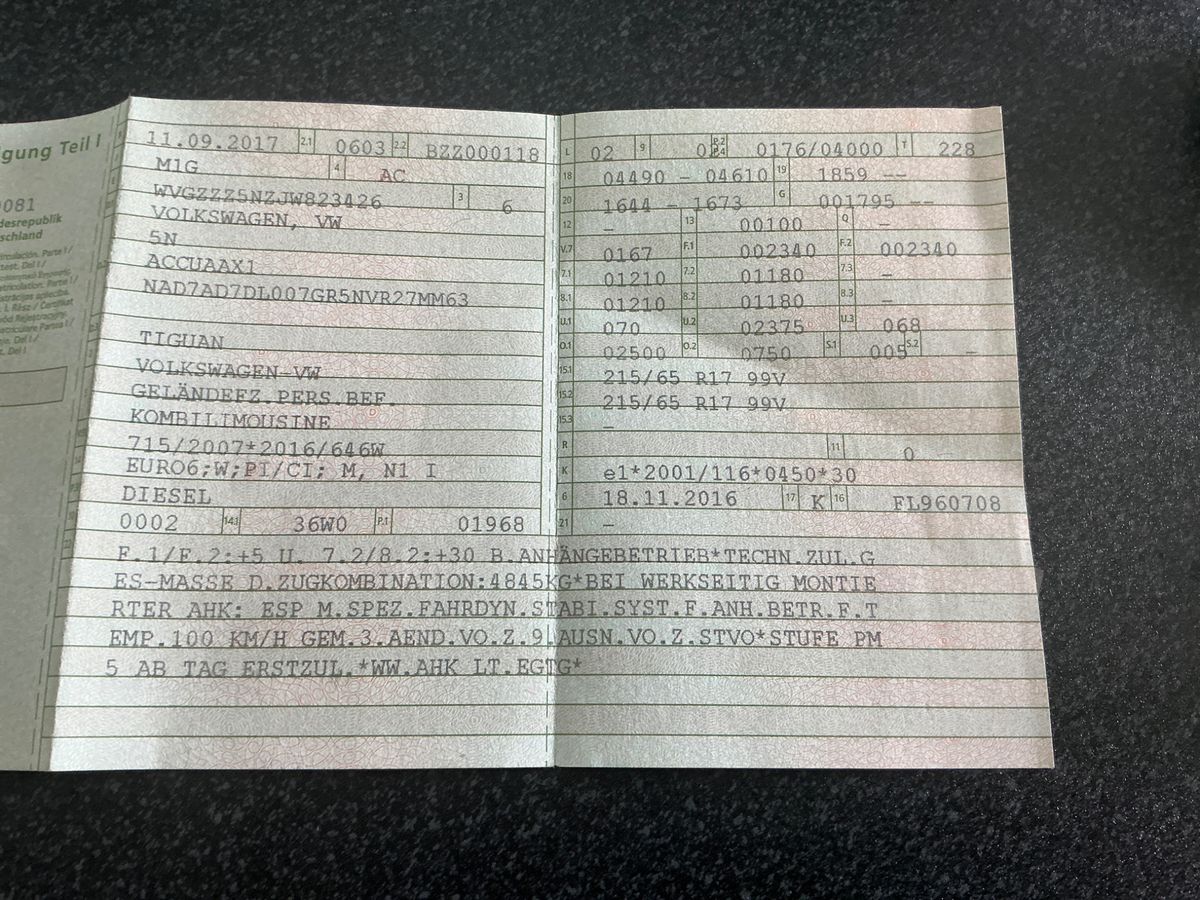 gung Teil I
081
desrepublik
schland
11.09.2017 2.1 0603 2.2 BZZ000118
M1G 4 AC
WVGZZZ5NZJW823426 3 6
VOLKSWAGEN, VW
5N
ACCUAAX1
NAD7AD7DL007GR5NVR27MM63
TIGUAN
VOLKSWAGEN-VW
GELÄNDEFZ.PERS.BEF.
KOMBILIMOUSINE
715/2007*2016/646W
EURO6;W;PI/CI; M, N1 I
DIESEL
0002 14.1 36W0 P.1 01968
L 02 9 P.2 P.4 0176/04000 T 228
18 04490 - 04610 19 1859 --
20 1644 - 1673 G 001795 --
12 - 13 00100 Q -
V.7 0167 F.1 002340 F.2 002340
7.1 01210 7.2 01180 7.3 -
8.1 01210 8.2 01180 8.3 -
U.1 070 U.2 02375 U.3 068
O.1 02500 O.2 0750 S.1 005 S.2 -
15.1 215/65 R17 99V
15.2 215/65 R17 99V
15.3 -
R 11 0
K e1*2001/116*0450*30
6 18.11.2016 17 K 16 FL960708
21 -
F.1/F.2:+5 U. 7.2/8.2:+30 B.ANHÄNGEBETRIEB*TECHN.ZUL.G
ES-MASSE D.ZUGKOMBINATION:4845KG*BEI WERKSEITIG MONTIE
RTER AHK: ESP M.SPEZ.FAHRDYN.STABI.SYST.F.ANH.BETR.F.T
EMP.100 KM/H GEM.3.AEND.VO.Z.9.AUSN.VO.Z.STVO*STUFE PM
5 AB TAG ERSTZUL.*WW.AHK LT.EGTG*